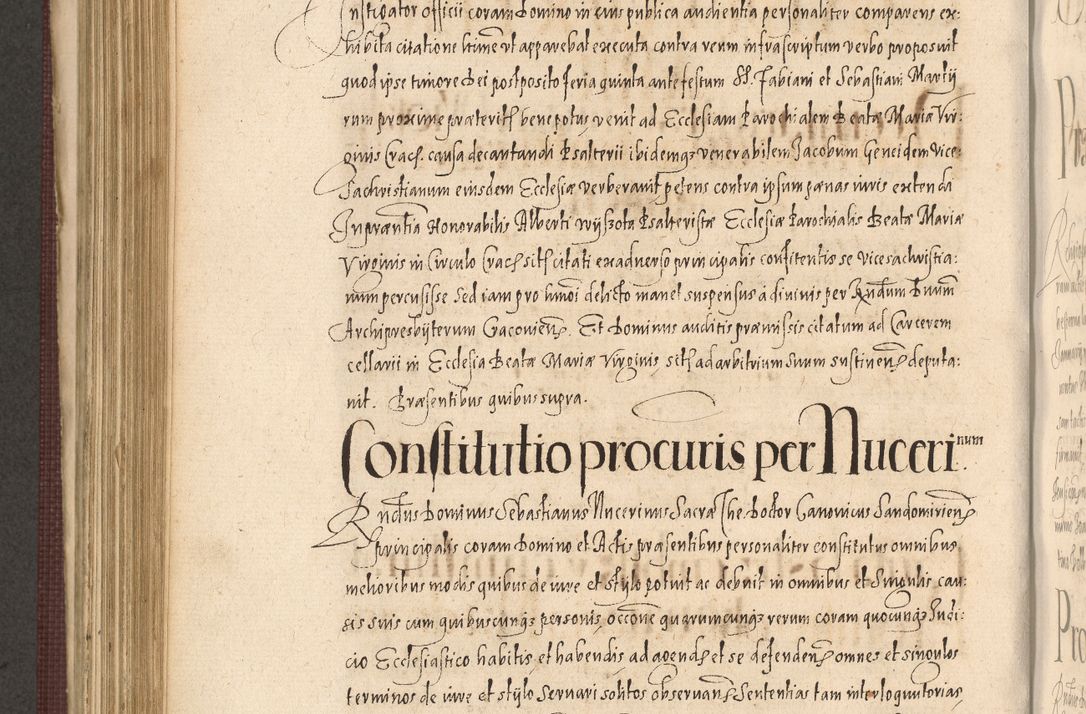 Instigator officii coram Domino in eius publica audientia personaliter comparens ex:
habita citatione litime ut apparebat executa contra reum infrascriptum verbo proposuit
quod ipse timore Dei postposito feria quinta ante festum SS. Fabiani et Sebastiani Martij
rum proxime præterit: bene potus, venit ad Ecclesiam Parochialem Beatæ Mariæ Vir:
ginis Crac. causa decantandi Psalterii ibidemq venerabilem Jacobum Gencidem Vice:
Sachristianum eiusdem Ecclesiæ verberavit petens contra ipsum pœnas iuris extenda
In præntia Honorabilis Alberti Wyszota Psalteristæ Ecclesiæ Parochialis Beatæ Mariæ
Virginis in Circulo Crac sit citati ex adverso principalis confitentis se vicesachristia:
num percusisse sed iam pro hmoi delicto manet suspensus à divinis per Rndum Dnum
Archipresbyterum Cracovien. Et Dominus auditis præmissis citatum ad Carcerem
cellarii in Ecclesia Beatæ Mariæ Virginis sit ad arbitrium suum sustinen deputa:
vit. Præsentibus quibus supra.
Constitutio procuris per Nuceri num
Rndus Dominus Sebastianus Nucerinus Sacræ The. Doctor Canonicus Sandomirien
principalis coram Domino et Actis præsentibus personaliter constitutus omnibus
melioribus modis quibus de iure et stylo potuit ac debuit in omnibus et singulis cau:
sis suis cum quibuscunq personis, occone quarumcunq rerum coram quocunq Judi:
cio Ecclesiastico habitis et habendis ad agend et se defenden omnes et singulos
terminos de iure et stylo servari solitos observan Sententias tam interloquutorias